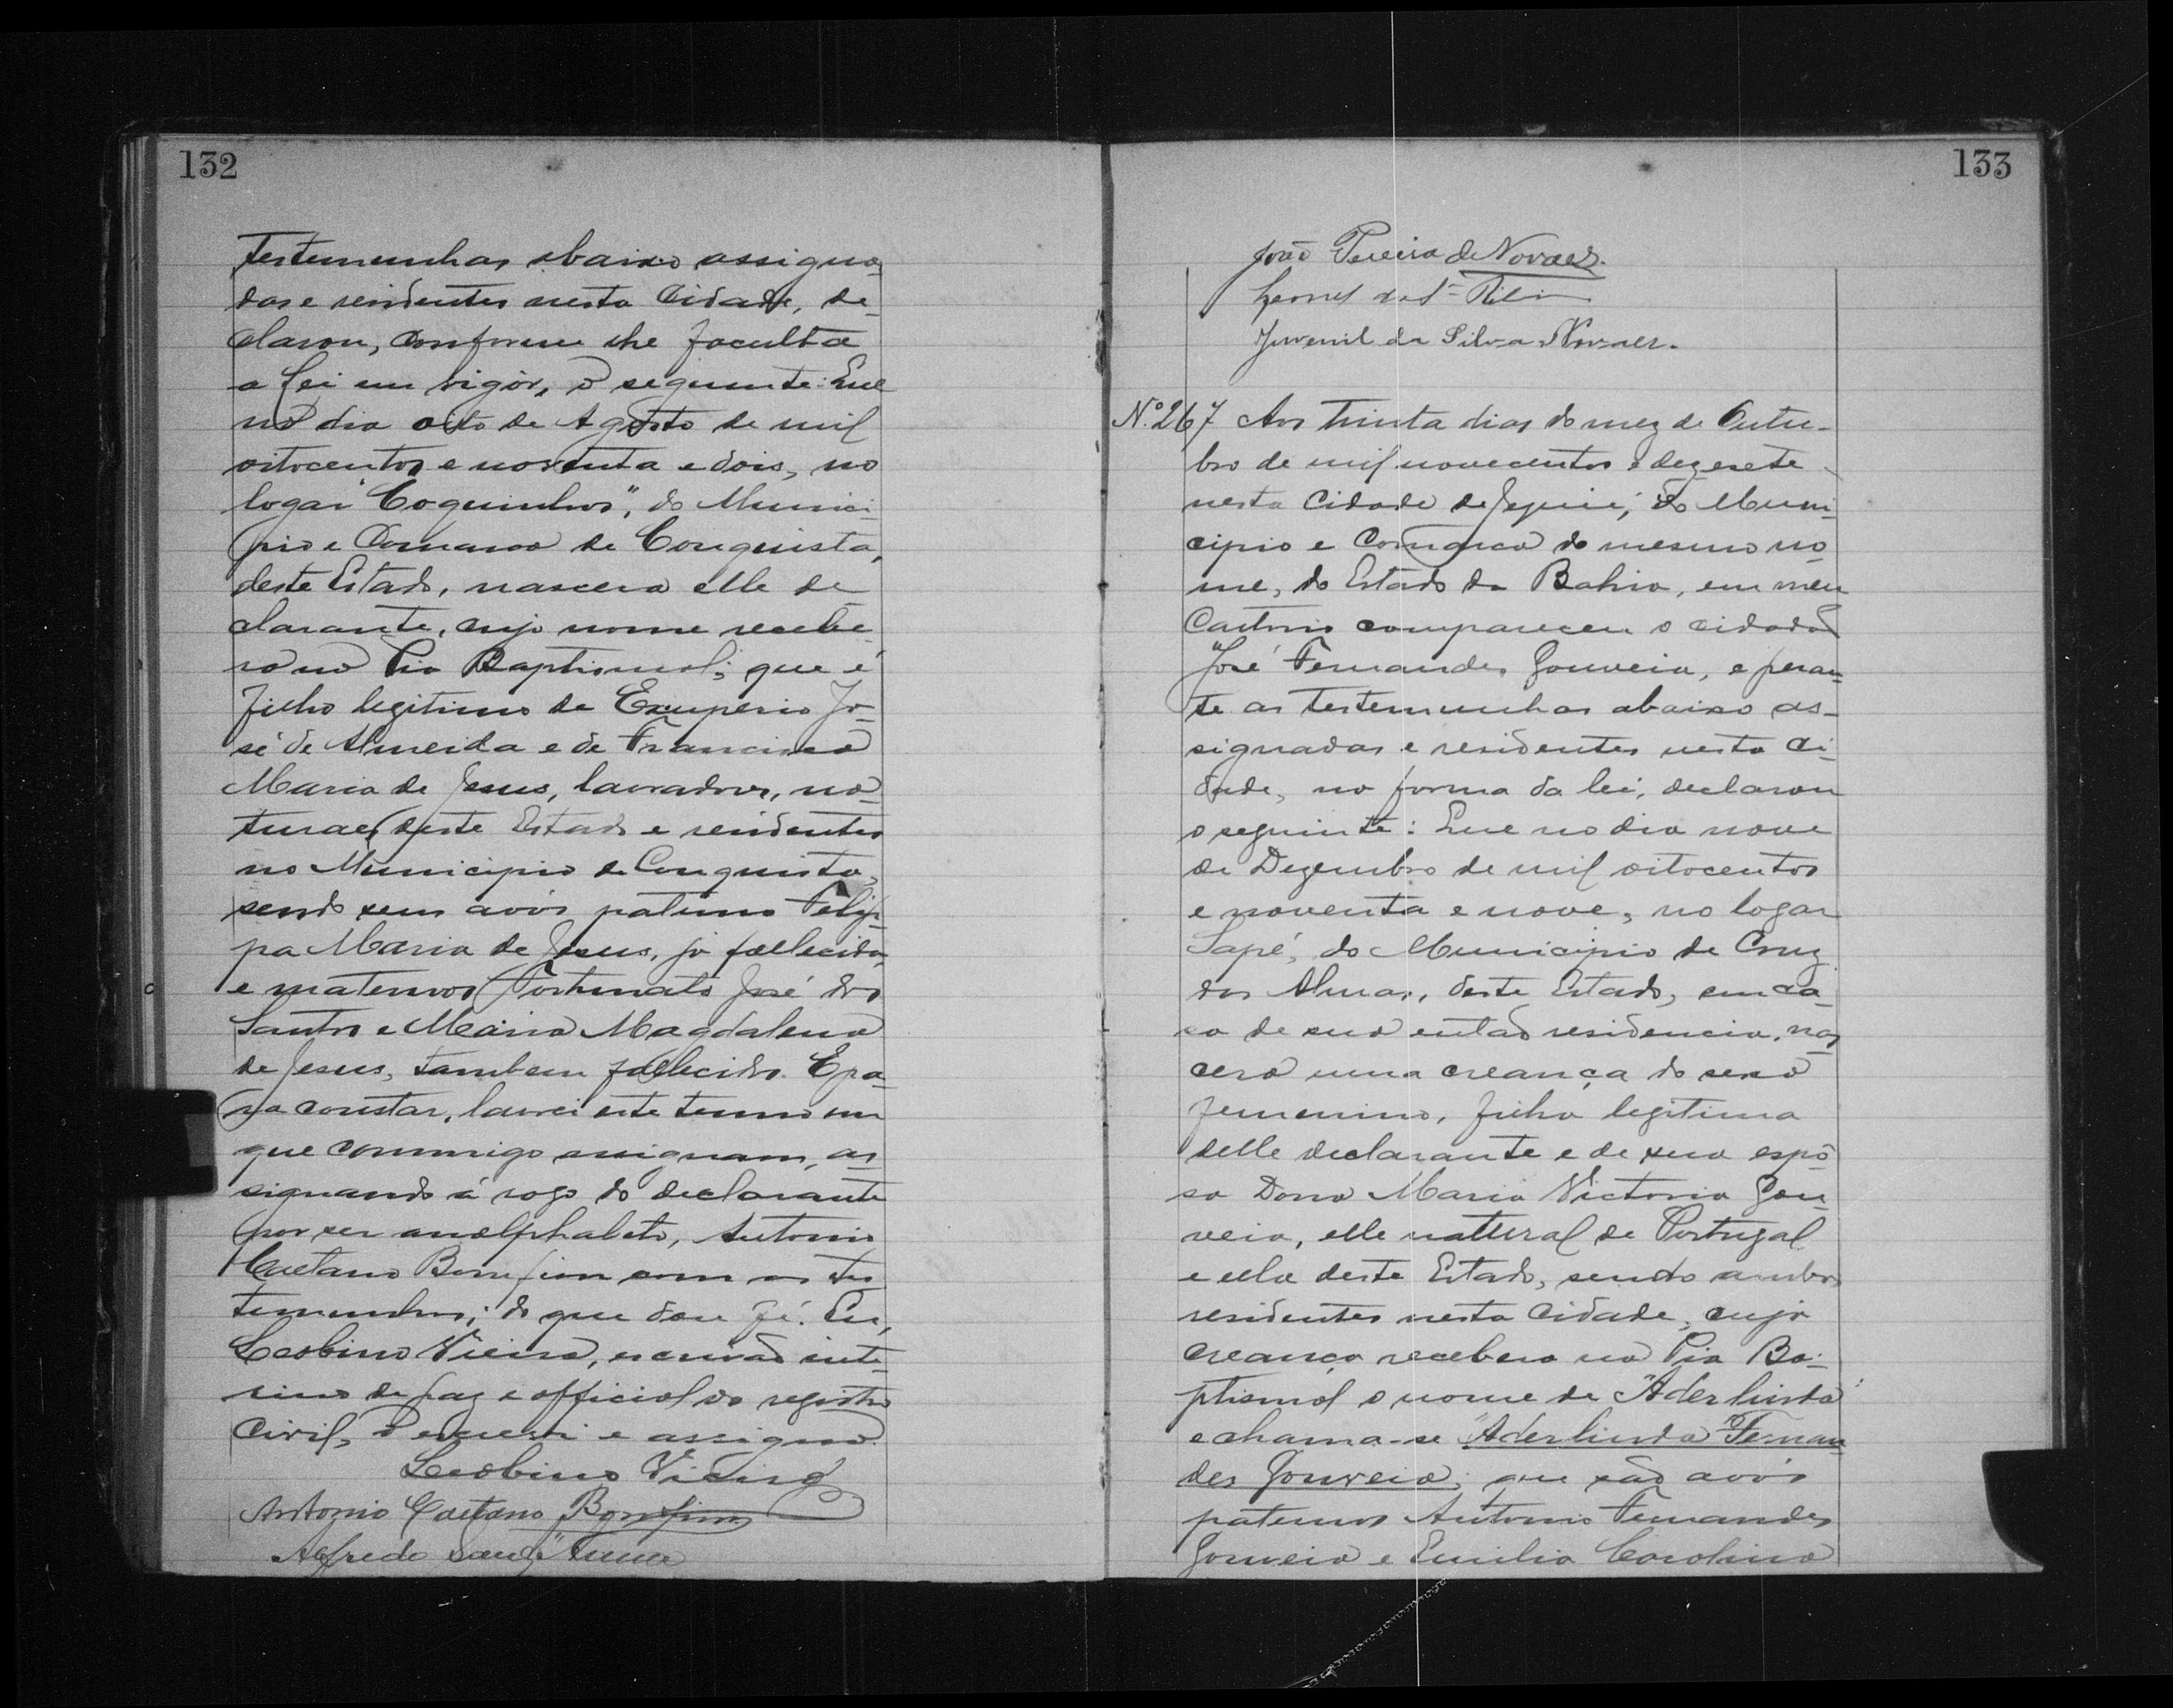 132
testemunhas abaixo assigna-
das e residentes nesta Cidade, de-
clarou, conforme lhe faculta
a lei em vigôr, o seguinte: Que
no dia oito de Agosto de mil
oitocentos e noventa e dois, no
logar "Coquinhos", do Munici-
pio e Comarca de Conquista,
deste Estado, nascera elle de-
clarante, cujo nome recebe-
ra na Pia Baptismal; que é
filho legitimo de Exuperio Jo-
sé de Almeida e de Francisca
Maria de Jesus, lavradores, na-
turaes deste Estado e residentes
no Municipio de Conquista,
sendo seus avós paterno Felip-
pa Maria de Jesus, já fallecida,
e maternos Fortunato José dos
Santos e Maria Magdalena
de Jesus, tambem fallecidos. E pa-
ra constar, lavrei este termo em
que commigo assignam, as-
signando á rogo do declarante
por ser analphabeto, Antonio
Caetano Bomfim com as tes-
temunhas; do que dou fé. Eu,
Leobino Vieira, escrivão inte-
rino de paz e official do registro
Civil, o escrevi e assigno.
Leobino Vieira
Antonio Caetano Bomfim
Alfredo Sant'Anna
133
João Pereira de Novaes.
Juvenil da Silva Novaes.
Nº. 267 Aos trinta dias do mez de Outu-
bro de mil novecentos e dezesete
nesta Cidade de Jequié, do Muni-
cipio e Comarca do mesmo no-
me, do Estado da Bahia, em meu
Cartorio compareceu o cidadão
José Fernandes Gouveia, e peran-
te as testemunhas abaixo as-
signadas e residentes nesta Ci-
dade, na forma da lei, declarou
o seguinte: Que no dia nove
de Dezembro de mil oitocentos
e noventa e nove, no logar
Sapé, do Municipio de Cruz
das Almas, deste Estado, em ca-
sa de sua então residencia, nas-
cera uma creança do sexo
femenino, filha legitima
delle declarante e de sua espo-
sa Dona Maria Victoria Gou-
veia, elle natural de Portugal
e ella deste Estado, sendo ambos
residentes nesta Cidade, cuja
creança recebera na Pia Ba-
ptismal o nome de "Aderlinda"
e chama-se "Aderlinda Fernan-
des Gouveia; que são avós
paternos Antonio Fernandes
Gouveia e Emilia Carolina